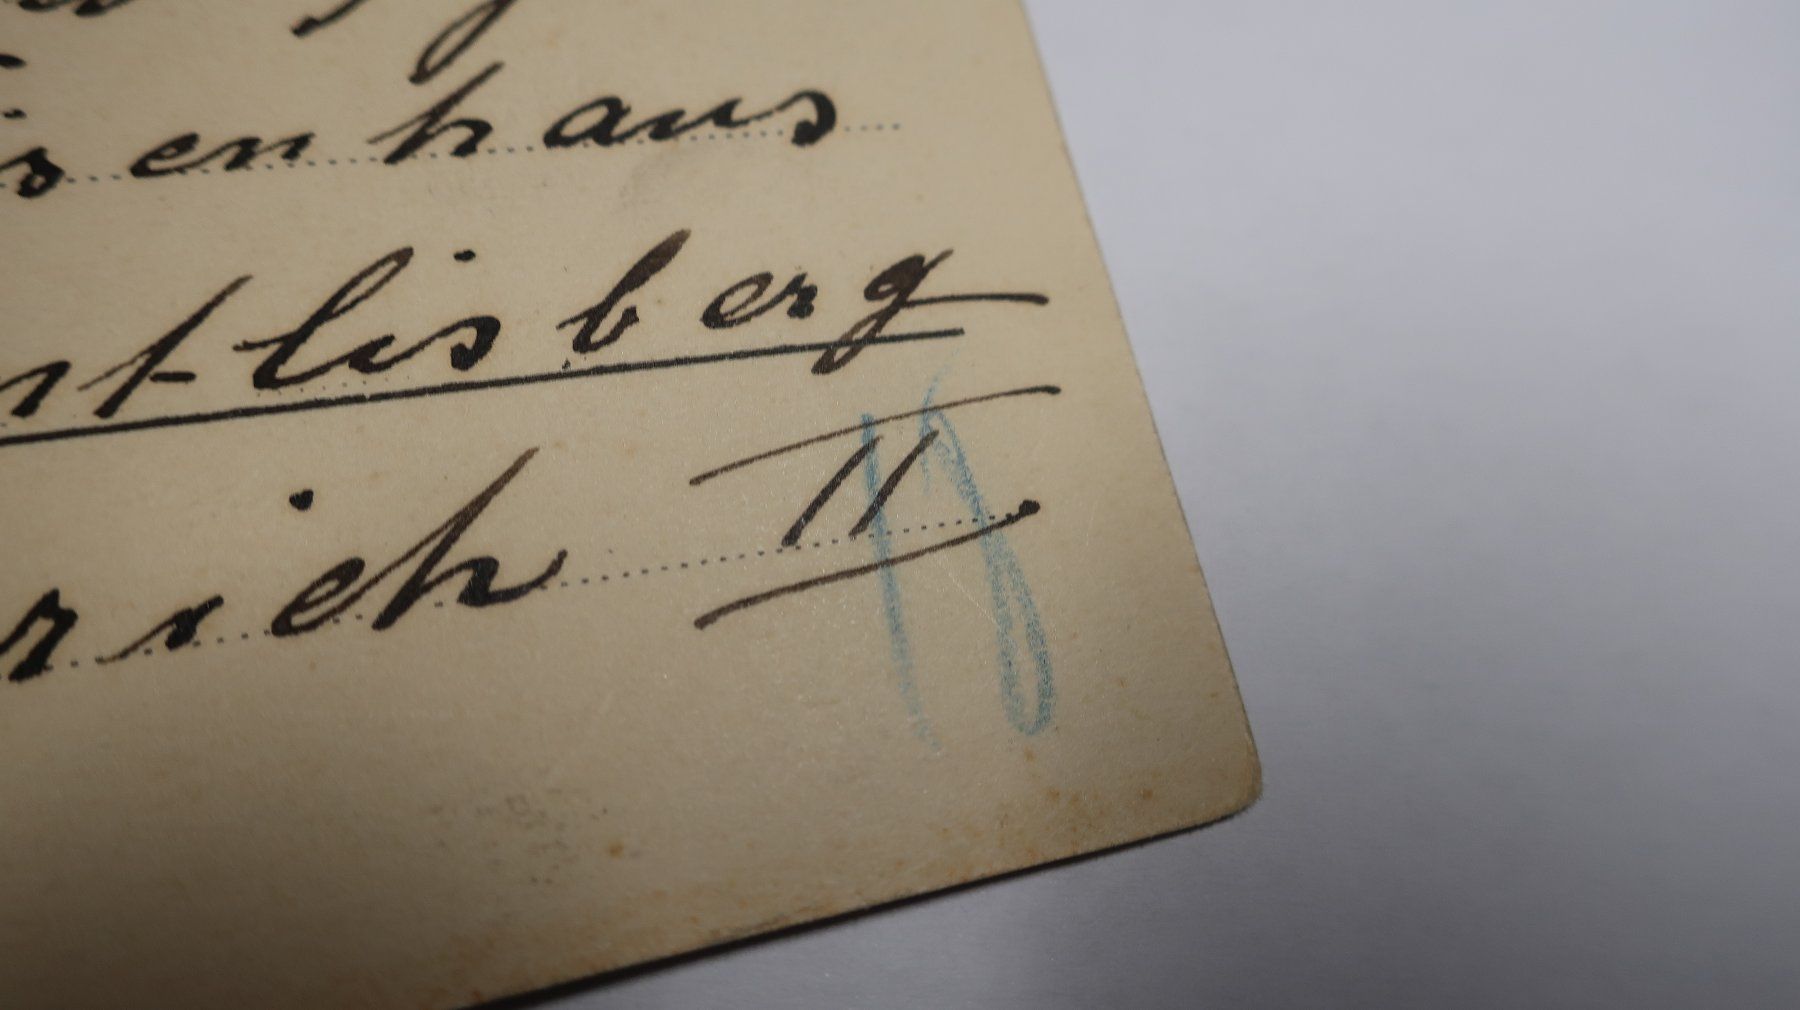 isenhaus
ntlisberg
rich II